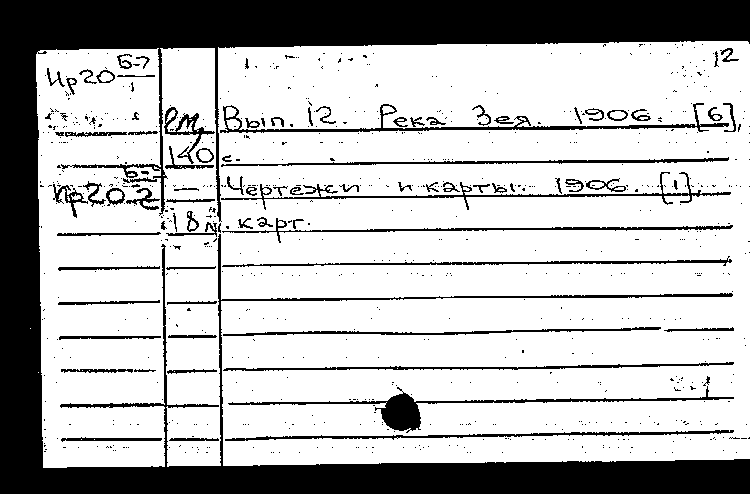 12
Ир20 Б-7/1
Вып. 12. Река Зея. 1906. [6],
140 с.
Ир20 2 — Чертежи и карты. 1906. [1],
18 л. карт.